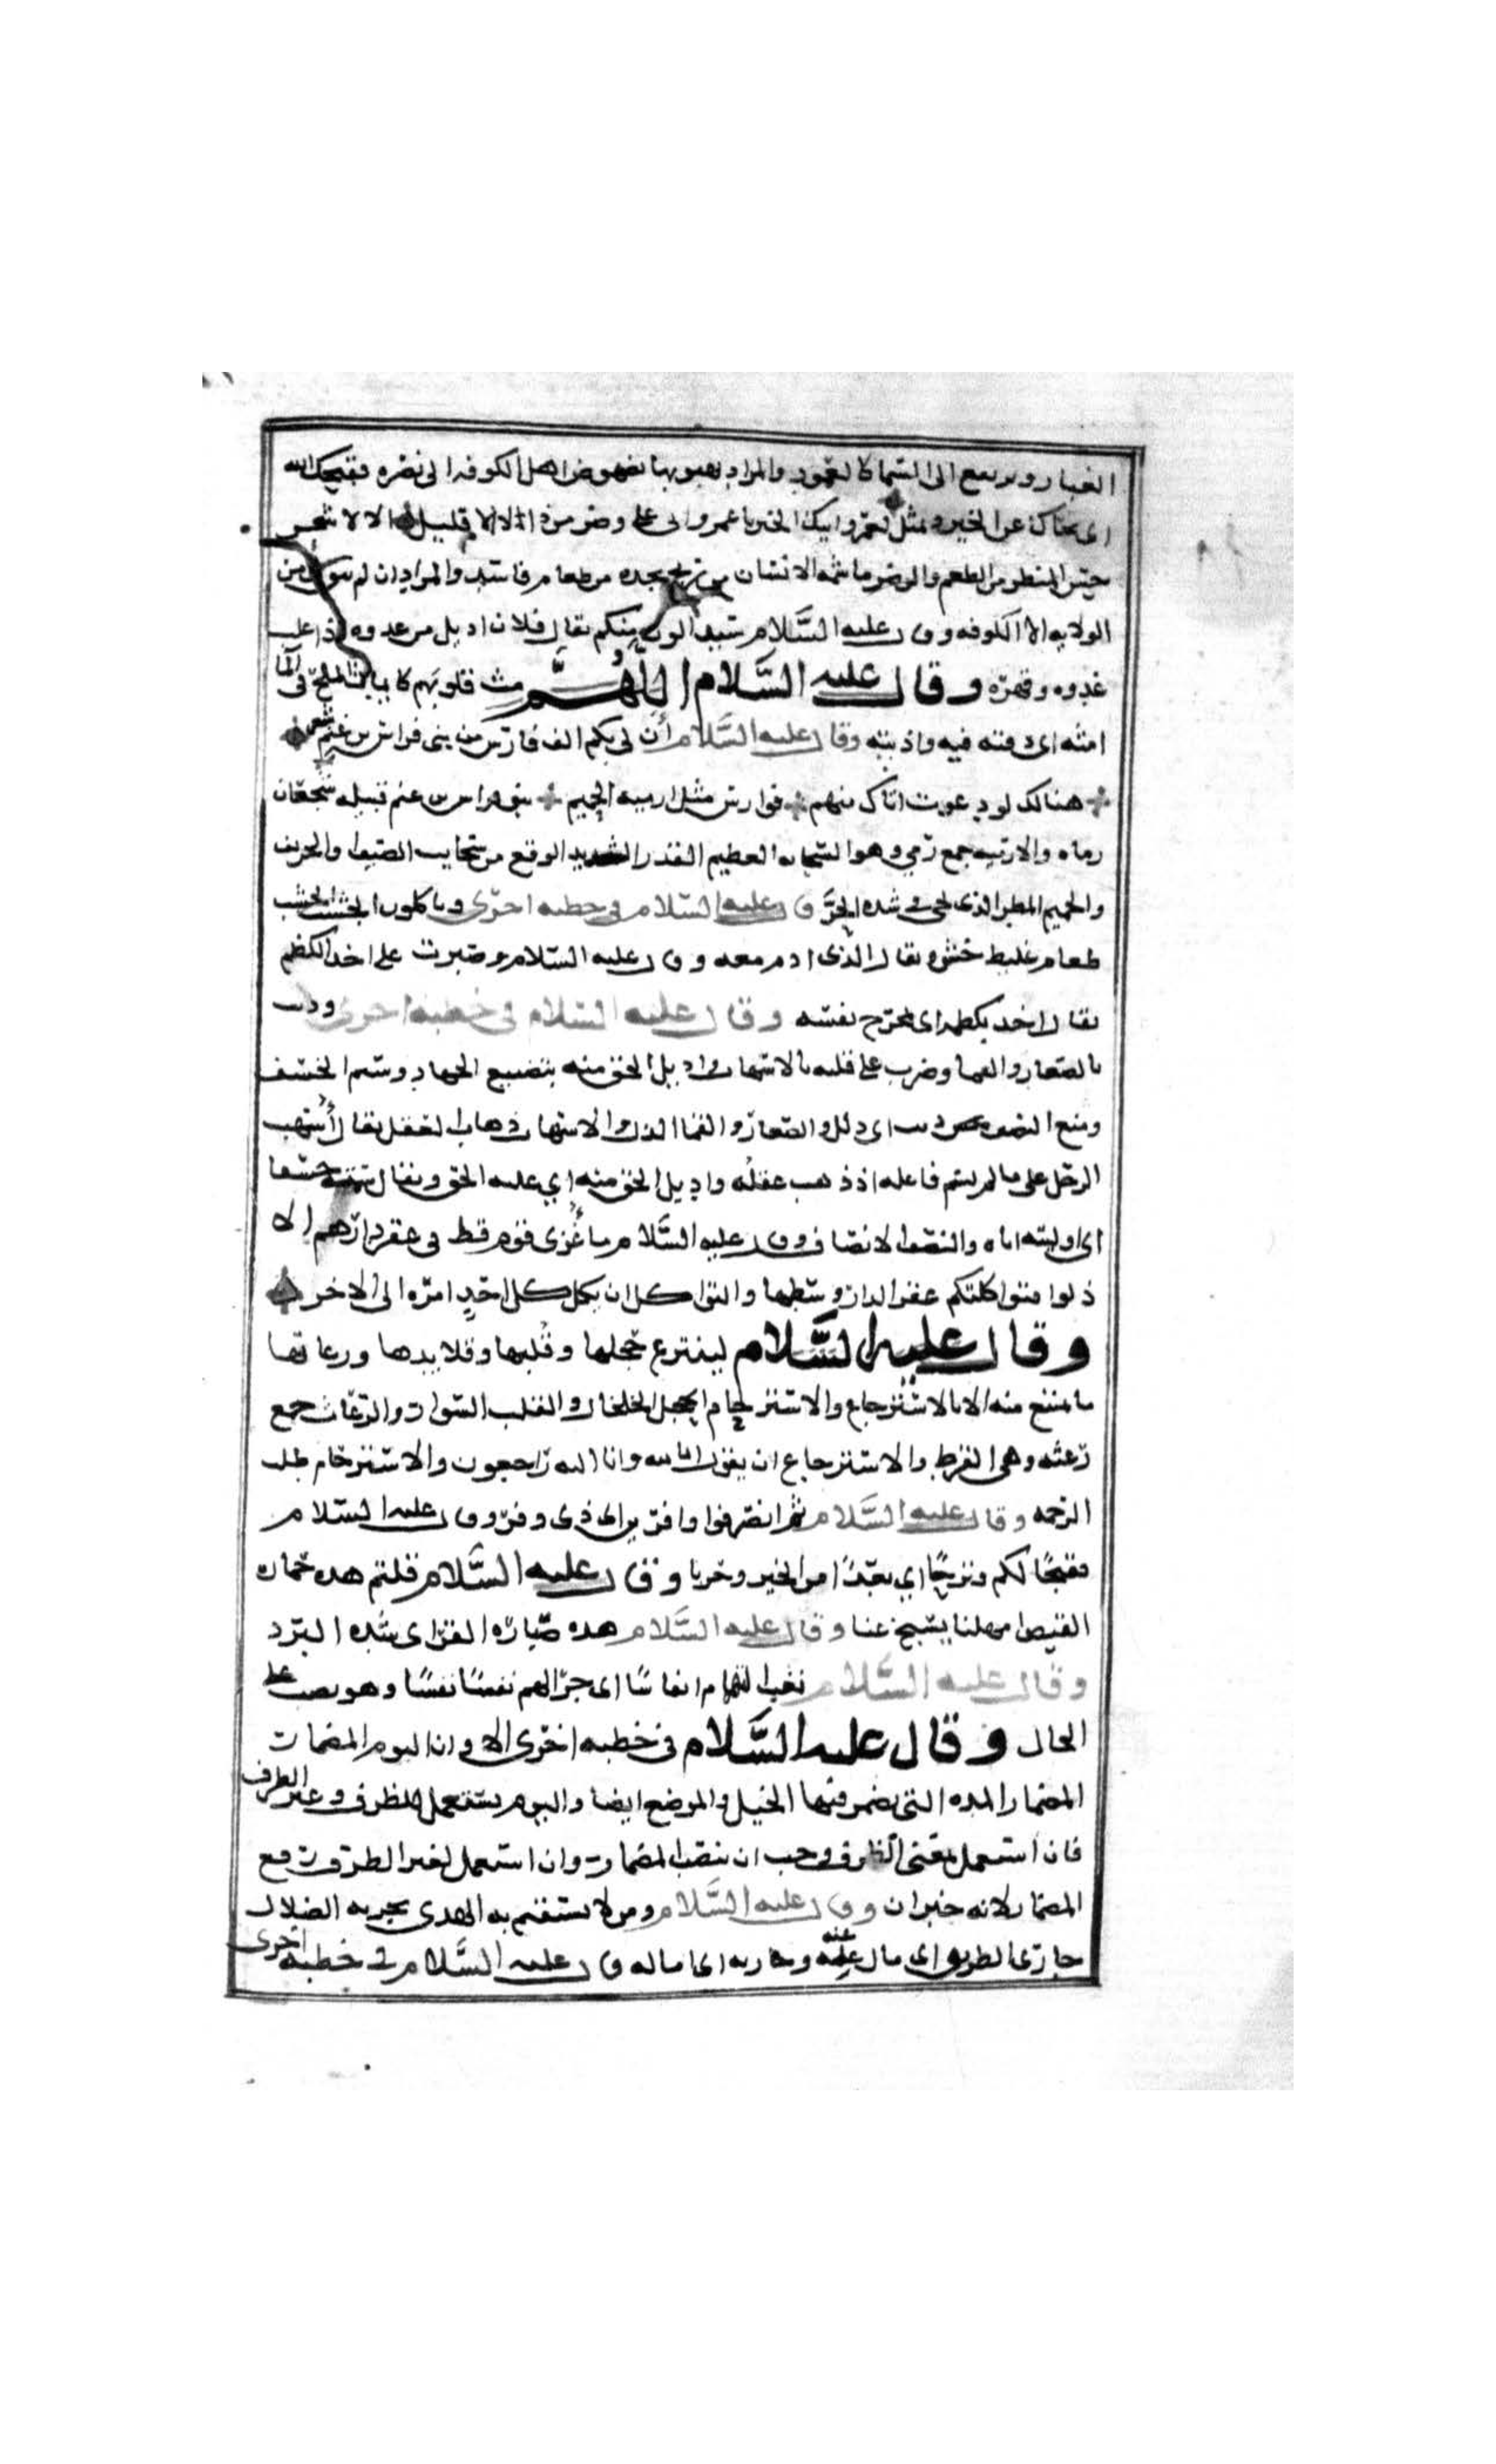 الغبار ويرتفع الى السما كالعمود والمراد بهبوبها نهوض اهل الكوفه الى نصره فقبحك الله
اى نحاك عن الخير وتمثل لعمر وابيك الخير يا عمرو انى على وضر من ذا الانا قليل الالا شجر
حبس المنظر من الطعم والوضر ما شمه الانسان من ريح يجده من طعام فاسد والمراد ان لم من
الولايه الا الكوفه وقال عليه السلام سيدالون منكم يقال فلان اديل من عدوه اذا غلب
عدوه وقهره وقال عليه السلام اللهم مث قلوبهم كما يماث الملح فى الما
امثه اى دفته فيه واذبته وقال عليه السلام أن لى بكم الف فارس من بنى فراس بن غنم شعر
هنالك لو دعوت اتاك منهم فوارس مثل ارميه الحميم بنو فراس بن غنم قبيله شجعان
رماه والارميه جمع رمي وهو السحابه العظيم القدر الشديد الوقع من سحايب الصيف والخريف
والحميم المطر الذى يجى فى شده الحر وقال عليه السلام فى خطبه اخرى وياكلون الجشب الجشب
طعام غليظ خشن ويقال الذى لا ادم معه وقال عليه السلام وصبرت على اخذ الكظم
يقال اخذ بكظمه اى مخرج نفسه وقال عليه السلام فى خطبه اخرى وديث
بالصغار والقما وضرب على قلبه بالاسهاب واديل الحق منه بتضييع الجهاد وسيم الخسف
ومنع النصف ديث اى ذلل والصغار والقما الذل والاسهاب ذهاب العقل يقال أُسهب
الرجل على ما لم يسم فاعله اذا ذهب عقله واديل الحق منه اي عليه الحق ويقال سمته خسفا
اى اوليته اياه والنصف الانصاف وقال عليه السلام ما غُزى قوم قط فى عقر دارهم الا
ذلوا فتواكلتم عقر الدار وسطها والتواكل ان يكل كل احدٍ امره الى الاخر
وقال عليه السلام لينتزع حجلها وقُلبها وقلايدها ورعاثها
ما تمنع منه الا بالاسترجاع والاسترحام الحجل الخلخال والقلب السوار والرعاث جمع
رعثه وهى القرط والاسترجاع ان يقول انا لله وانا اليه راجعون والاسترحام طلب
الرحمه وقال عليه السلام ثم انصرفوا وافرين اى ذوى وفر وقال عليه السلام
فقبحًا لكم وترحًا اي بعدًا من الخير وخزيا وقال عليه السلام قلتم هذه حماره
القيض امهلنا يسبخ عنا وقال عليه السلام هذه صباره القر اى شده البرد
وقال عليه السلام نغب التهام انفاسًا اى جرع الهم نفسًا نفسًا وهو نصب على
الحال وقال عليه السلام فى خطبه اخرى الا وان اليوم المضمار
المضمار المده التى تضمر فيها الخيل والموضع ايضا واليوم يستعمل للظرف وغير الظرف
فان استعمل بمعنى الظرف وجب ان ينصب المضمار وان استعمل لغير الظرف رفع
المضمار لانه خبر ان وقال عليه السلام ومن لا يستقم به الهدى يجر به الضلال
جار عن الطريق اى مال عنه وجار به اى اماله وقال عليه السلام فى خطبه اخرى